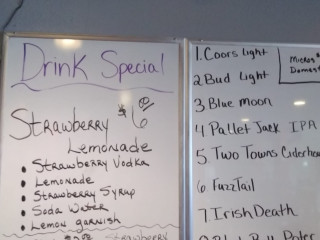 Drink Special
Strawberry $6.00
Lemonade
• Strawberry Vodka
• Lemonade
• Strawberry Syrup
• Soda Water
• Lemon garnish
Strawberry
1. Coors light
2 Bud light
3 Blue moon
4 Pallet Jack IPA
5 Two Towns Ciderhou
6 FuzzTail
7 Irish Death
Micros
Domest